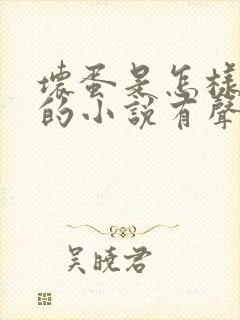 壞蛋是怎樣
的小說有聲
吳曉君